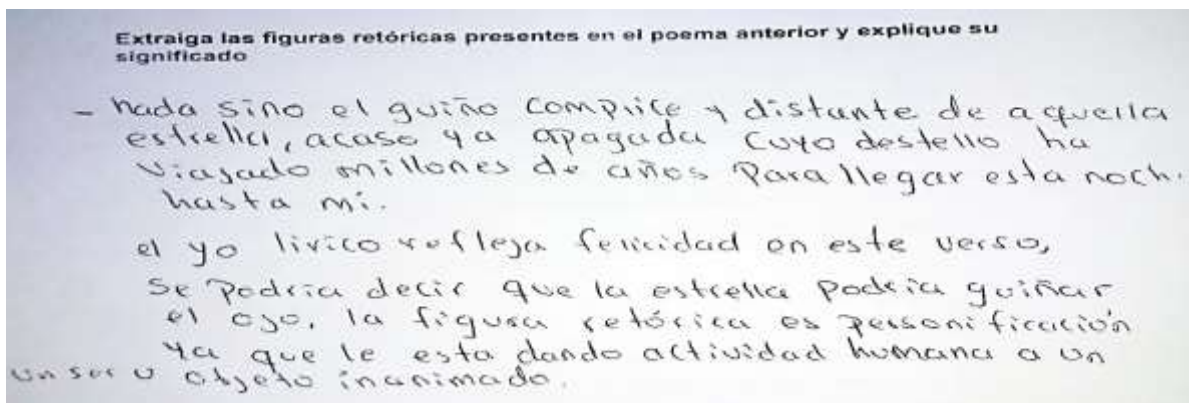 Extraiga las figuras retóricas presentes en el poema anterior y explique su
significado
- nada sino el guiño complice y distante de aquella
estrella, acaso ya apagada cuyo destello ha
viajado millones de años para llegar esta noch.
hasta mi.
el yo lirico refleja felicidad en este verso,
se podria decir que la estrella podria guiñar
el ojo, la figura retórica es personificación
ya que le esta dando actividad humana a un
un ser u objeto inanimado.